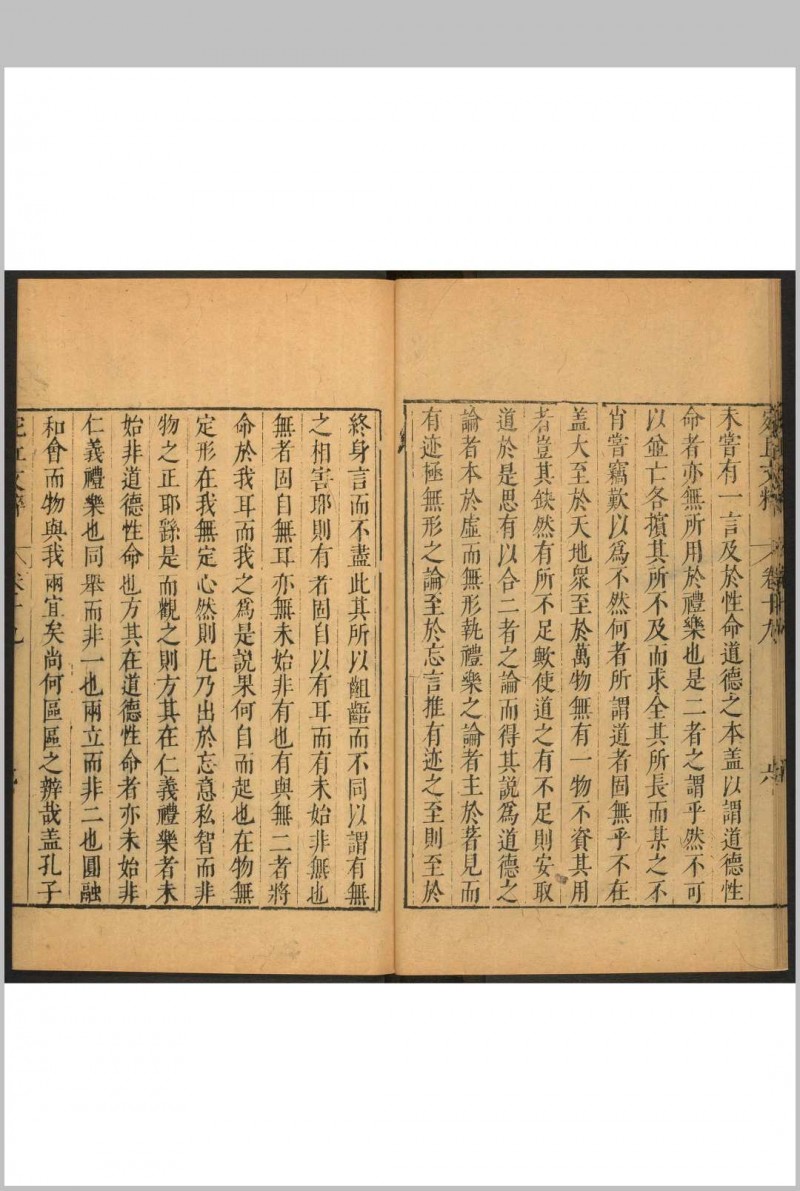 宛丘文粹 卷十九 六
未嘗有一言及於性命道德之本蓋以謂道德性
命者亦無所用於禮樂也是二者之謂乎然不可
以並亡各擯其所不及而求全其所長而某之不
肖嘗竊歎以爲不然何者所謂道者固無乎不在
蓋大至於天地衆至於萬物無有一物不資其用
者豈其缺然有所不足歟使道之有不足則安取
道於是思有以合二者之論而得其說爲道德之
論者本於虛而無形執禮樂之論者主於著見而
有迹極無形之論至於忘言推有迹之至則至於
終身言而不盡此其所以齟齬而不同以謂有無
之相害耶則有者固自以有耳而有未始非無也
無者固自無耳亦無未始非有也有與無二者將
命於我耳而我之爲是說果何自而起也在物無
定形在我無定心然則凡乃出於忘意私智而非
物之正耶繇是而觀之則方其在仁義禮樂者未
始非道德性命也方其在道德性命者亦未始非
仁義禮樂也同舉而非一也兩立而非二也圓融
和會而物與我兩宜矣尚何區區之辨哉蓋孔子
宛丘文粹 卷十九